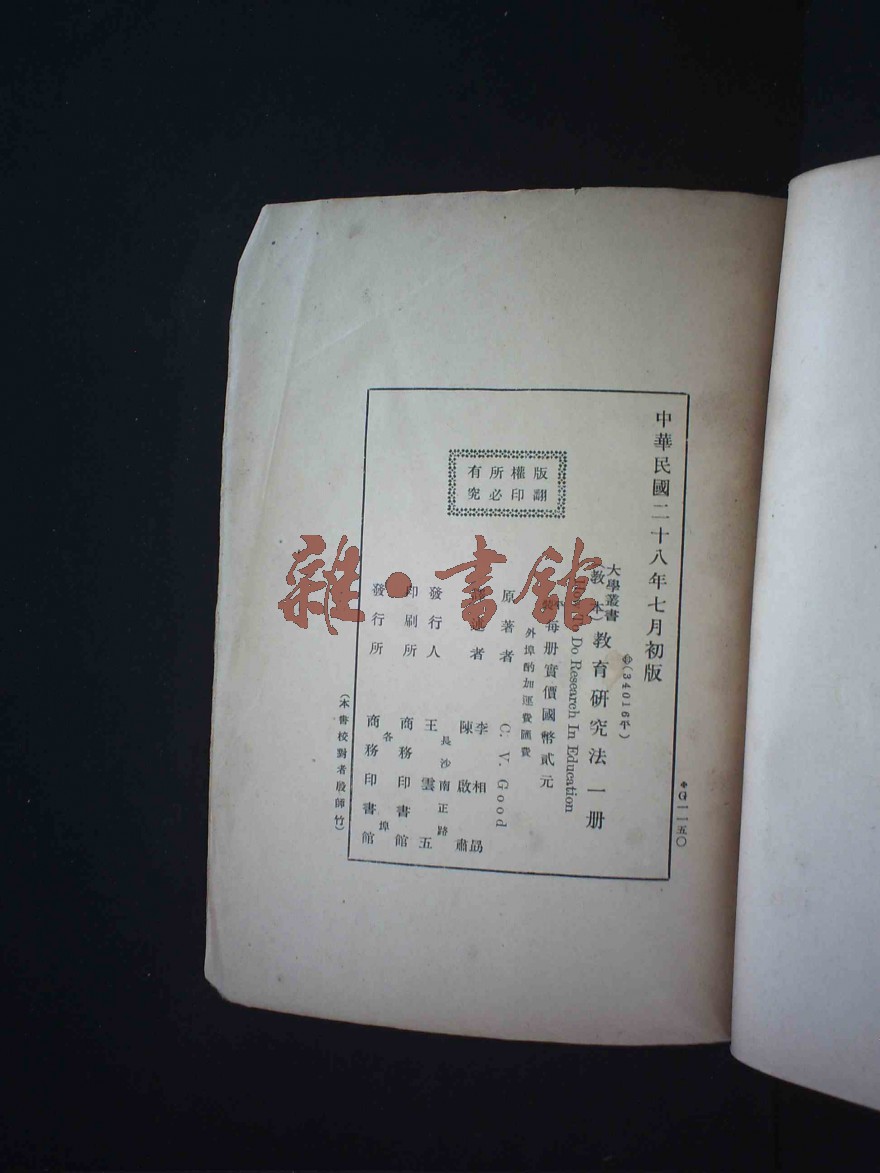 中華民國二十八年七月初版
◆G一一五〇
(34016平)
大學叢書
(教本)教育研究法一册
How To Do Research In Education
每册實價國幣貳元
外埠酌加運費匯費
版權所有
翻印必究
原著者 C. V. Good
述者 李相勗 陳啟肅
發行人 王雲五
長沙南正路
印刷所 商務印書館
發行所 各埠 商務印書館
(本書校對者殷師竹)
雜·書館